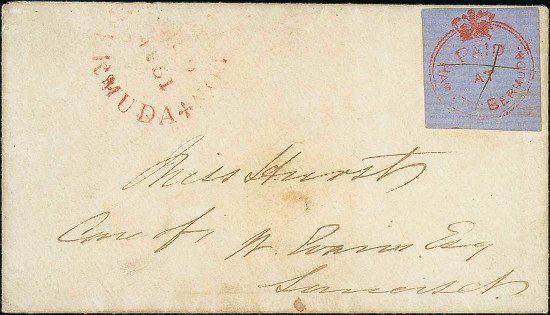 PAID
AT
HAMILTON BERMUDA
1861
RMUDA
Miss Hurst
Care of W. Evans Esq
Somerset